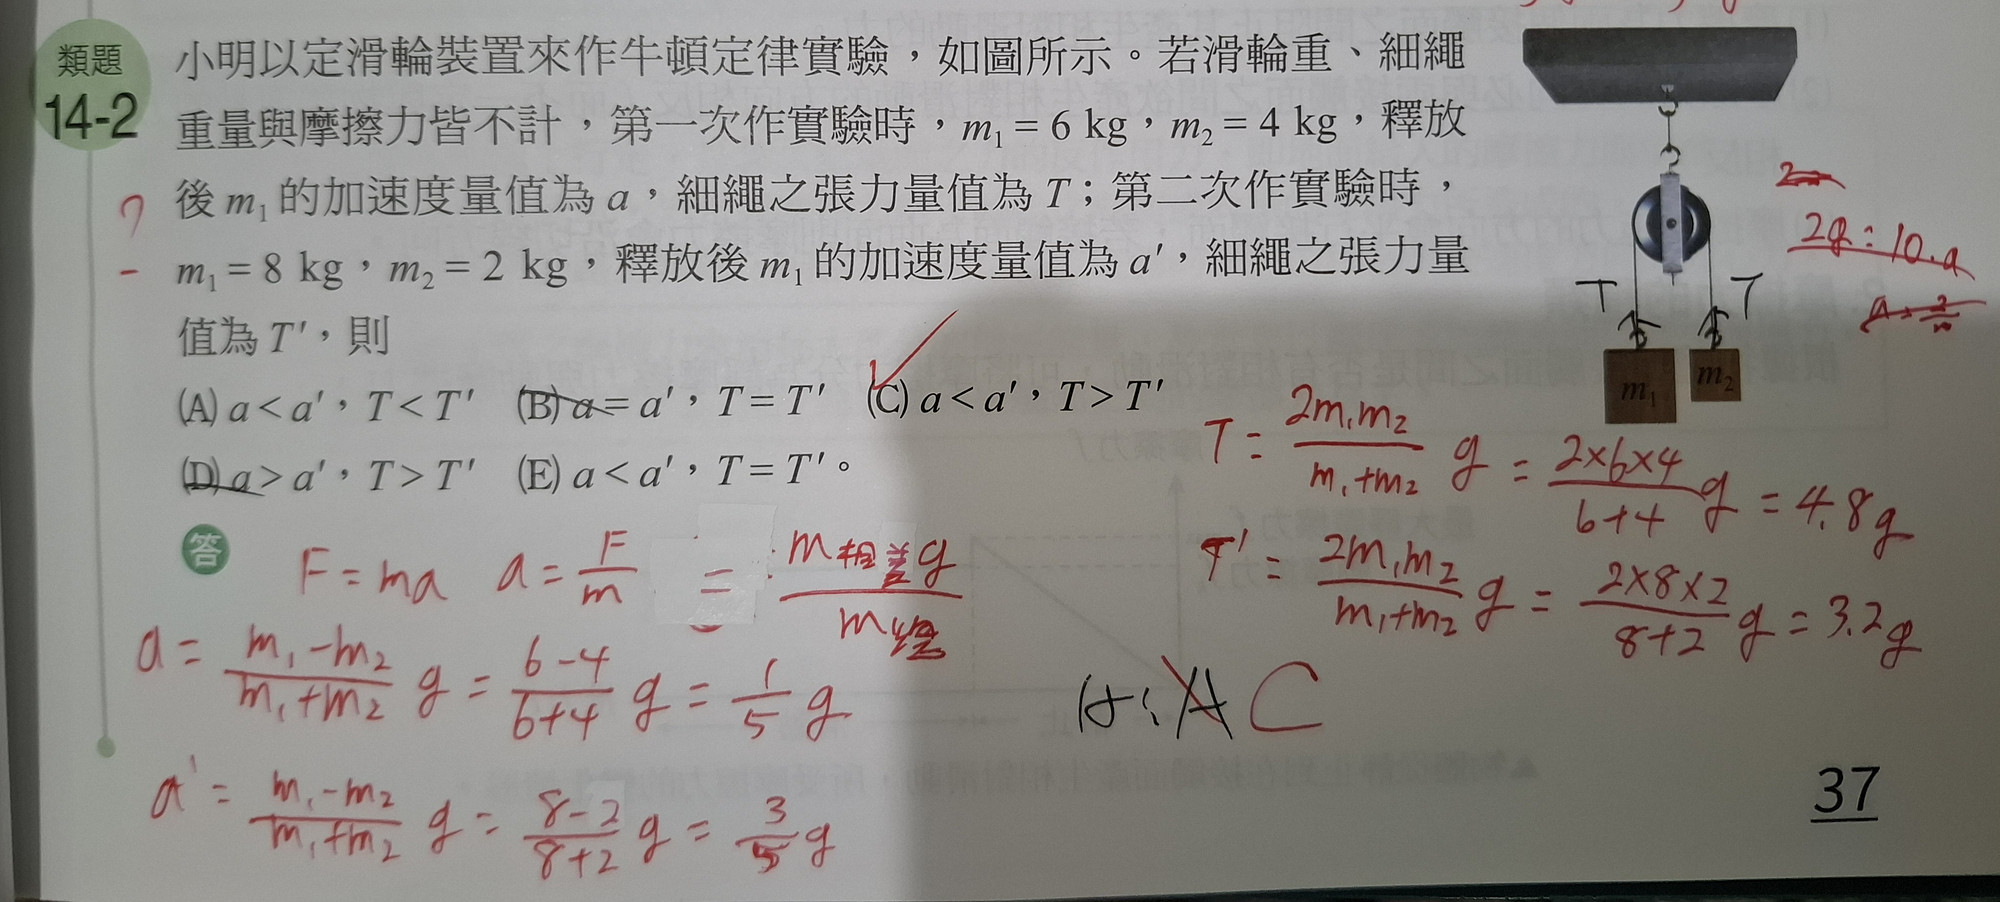 類題
14-2
小明以定滑輪裝置來作牛頓定律實驗，如圖所示。若滑輪重、細繩
重量與摩擦力皆不計，第一次作實驗時，m₁ = 6 kg，m₂ = 4 kg，釋放
後 m₁ 的加速度量值為 a，細繩之張力量值為 T；第二次作實驗時，
m₁ = 8 kg，m₂ = 2 kg，釋放後 m₁ 的加速度量值為 a′，細繩之張力量
值為 T′，則
(A) a < a′，T < T′ (B) a = a′，T = T′ (C) a < a′，T > T′
(D) a > a′，T > T′ (E) a < a′，T = T′。
2g = 10·a
T T
m₁ m₂
答
F = ma a = F/m = m相差g/m總
a = (m₁-m₂)/(m₁+m₂) g = (6-4)/(6+4) g = 1/5 g
a' = (m₁-m₂)/(m₁+m₂) g = (8-2)/(8+2) g = 3/5 g
T = 2m₁m₂/(m₁+m₂) g = 2×6×4/(6+4) g = 4.8g
T' = 2m₁m₂/(m₁+m₂) g = 2×8×2/(8+2) g = 3.2g
A C
37